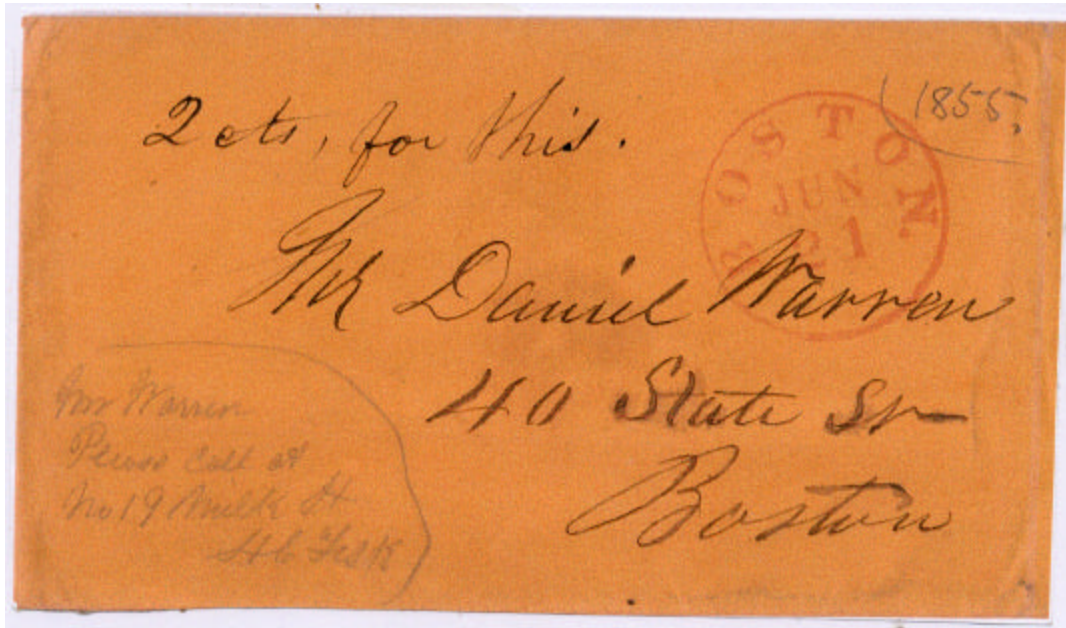 2 cts, for this.
1855.
BOSTON
JUN
21
Mr Daniel Warren
40 State St
Boston
Mr Warren
Please Call at
No 19 Milk St